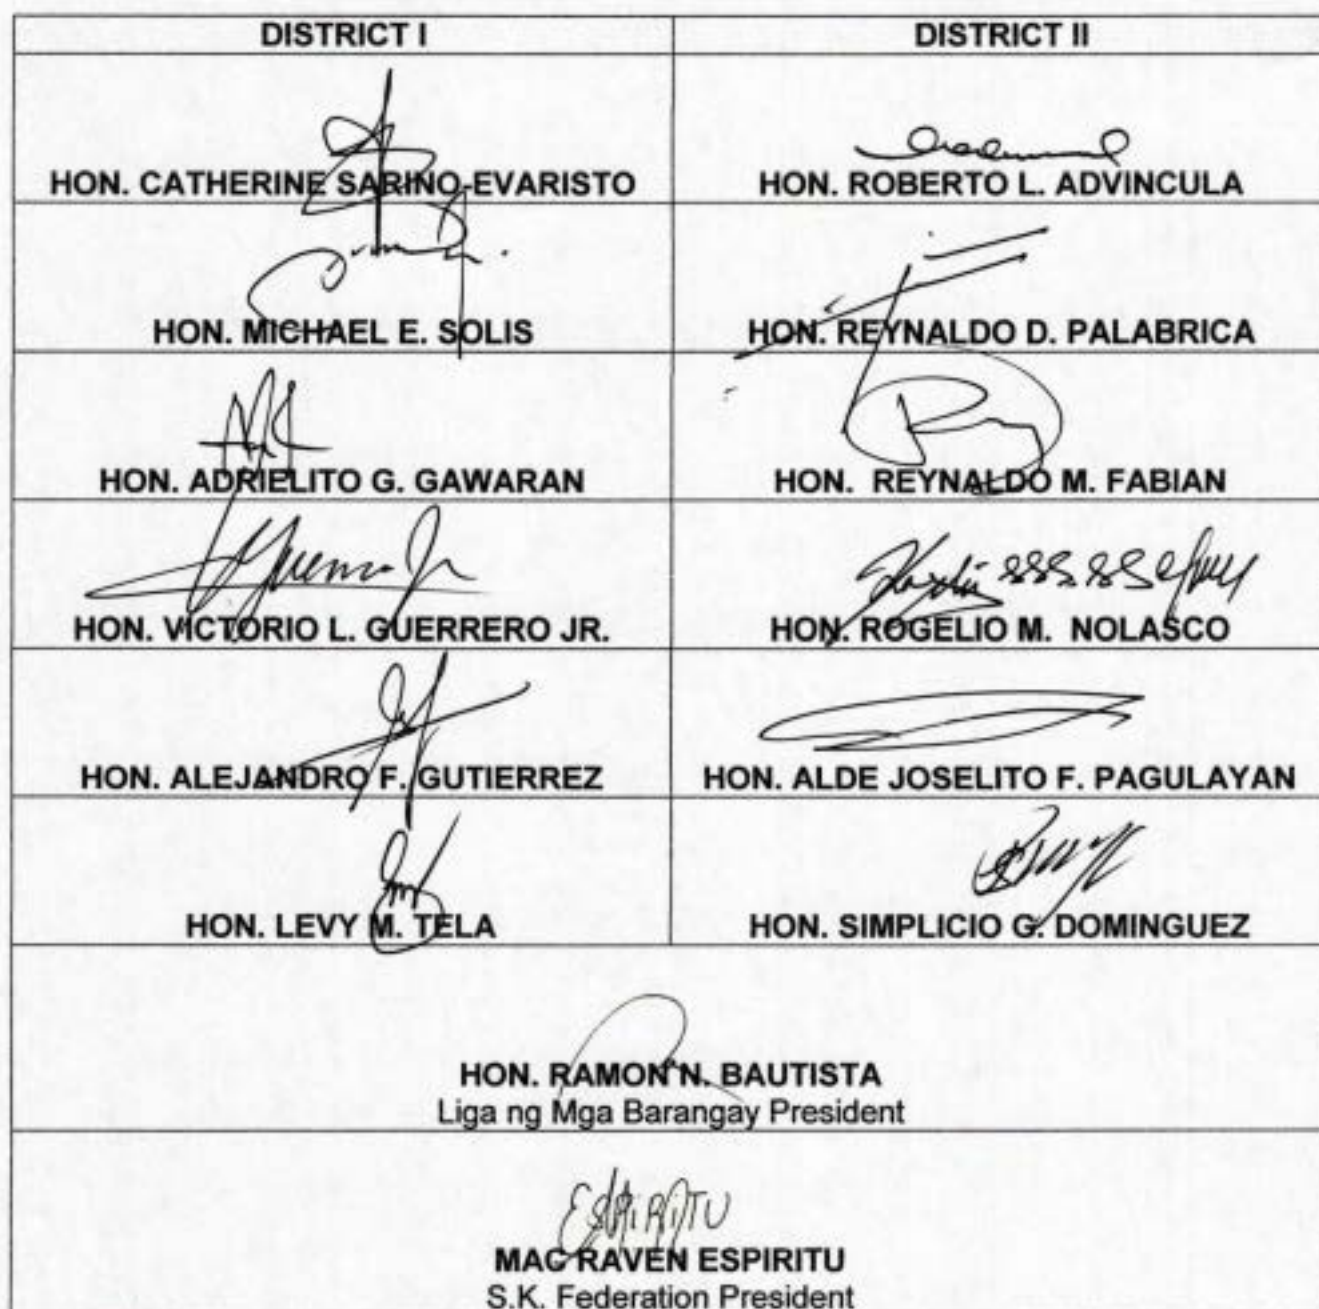 DISTRICT I DISTRICT II
HON. CATHERINE SARINO-EVARISTO HON. ROBERTO L. ADVINCULA
HON. MICHAEL E. SOLIS HON. REYNALDO D. PALABRICA
HON. ADRIELITO G. GAWARAN HON. REYNALDO M. FABIAN
HON. VICTORIO L. GUERRERO JR. HON. ROGELIO M. NOLASCO
HON. ALEJANDRO F. GUTIERREZ HON. ALDE JOSELITO F. PAGULAYAN
HON. LEVY M. TELA HON. SIMPLICIO G. DOMINGUEZ
HON. RAMON N. BAUTISTA
Liga ng Mga Barangay President
ESPIRITU
MAC RAVEN ESPIRITU
S.K. Federation President